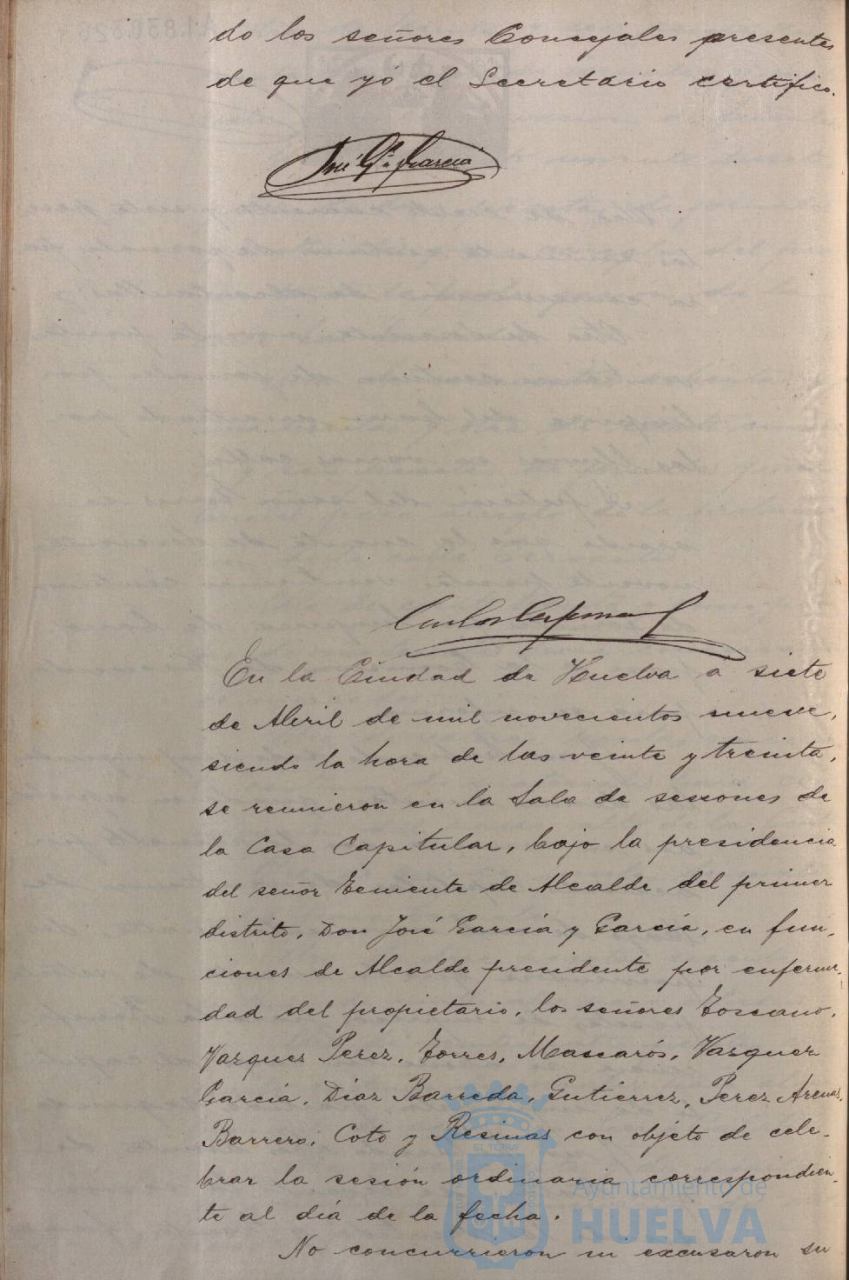 do los señores Concejales presentes
de que yó el Secretario certifico.
José Gª. García
Carlos
En la Ciudad de Huelva a siete
de Abril de mil novecientos nueve,
siendo la hora de las veinte y treinta,
se reunieron en la Sala de sesiones de
la Casa Capitular, bajo la presidencia
del señor Teniente de Alcalde del primer
distrito, Don José García y García, en fun-
ciones de Alcalde presidente por enferme-
dad del propietario, los señores Toscano,
Vazquez Perez, Torres, Mascarós, Vazquez
García, Díaz Barreda, Gutiérrez, Perez Arenas,
Barrero, Coto y Resinas con objeto de cele-
brar la sesión ordinaria correspondien-
te al día de la fecha.
No concurrieron ni excusaron su
Ayuntamiento de
HUELVA